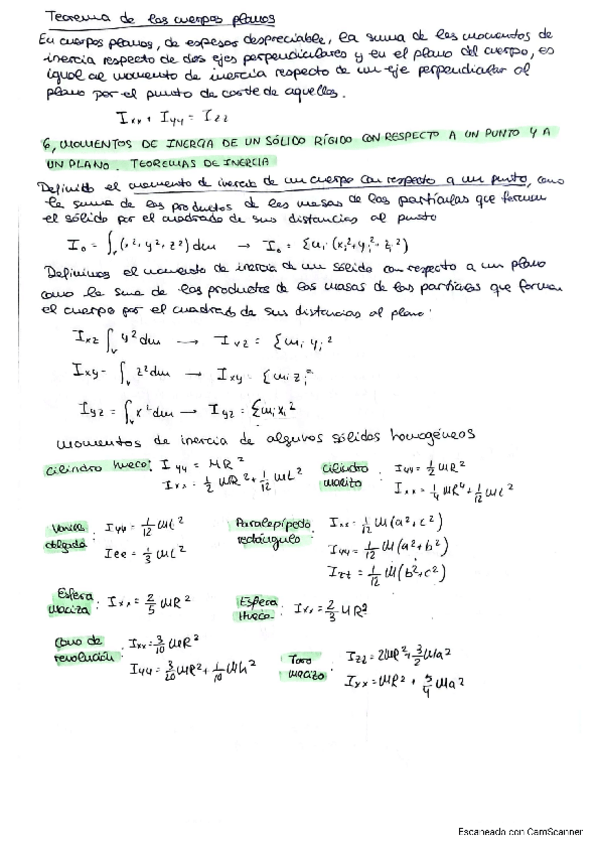 Teorema de los cuerpos planos
En cuerpos planos, de espesor despreciable, la suma de los momentos de
inercia respecto de dos ejes perpendiculares y en el plano del cuerpo, es
igual al momento de inercia respecto de un eje perpendicular al
plano por el punto de corte de aquellos.
Ixx + Iyy = Izz
6, MOMENTOS DE INERCIA DE UN SÓLIDO RÍGIDO CON RESPECTO A UN PUNTO Y A
UN PLANO. TEOREMAS DE INERCIA
Definido el momento de inercia de un cuerpo con respecto a un punto, como
la suma de los productos de las masas de las partículas que forman
el sólido por el cuadrado de sus distancias al punto
I₀ = ∫v (x², y², z²) dm → I₀ = Σmi (xi²+yi²+zi²)
Definimos el momento de inercia de un sólido con respecto a un plano
como la suma de los productos de las masas de las partículas que forman
el cuerpo por el cuadrado de sus distancias al plano:
Ixz ∫v y² dm → Ixz = Σmi yi²
Ixy = ∫v z² dm → Ixy = Σmi zi²
Iyz = ∫v x² dm → Iyz = Σmi xi²
momentos de inercia de algunos sólidos homogéneos
Cilindro hueco: Iyy = MR² Cilindro macizo : Iyy = 1/2 MR²
Ixx = 1/2 MR² + 1/12 ML² Ixx = 1/4 MR² + 1/12 ML²
Varilla delgada : Iyy = 1/12 ML² Paralelepípedo rectángulo : Ixx = 1/12 M(a²+c²)
Iee = 1/3 ML² Iyy = 1/12 M(a²+b²)
Izz = 1/12 M(b²+c²)
Esfera maciza : Ixx = 2/5 MR² Esfera Hueca : Ixx = 2/3 MR²
Cono de revolución : Ixx = 3/10 MR² Toro macizo : Izz = MR² + 3/2 Ma²
Iyy = 3/20 MR² + 1/10 Mh² Ixx = MR² + 5/4 Ma²
Escaneado con CamScanner